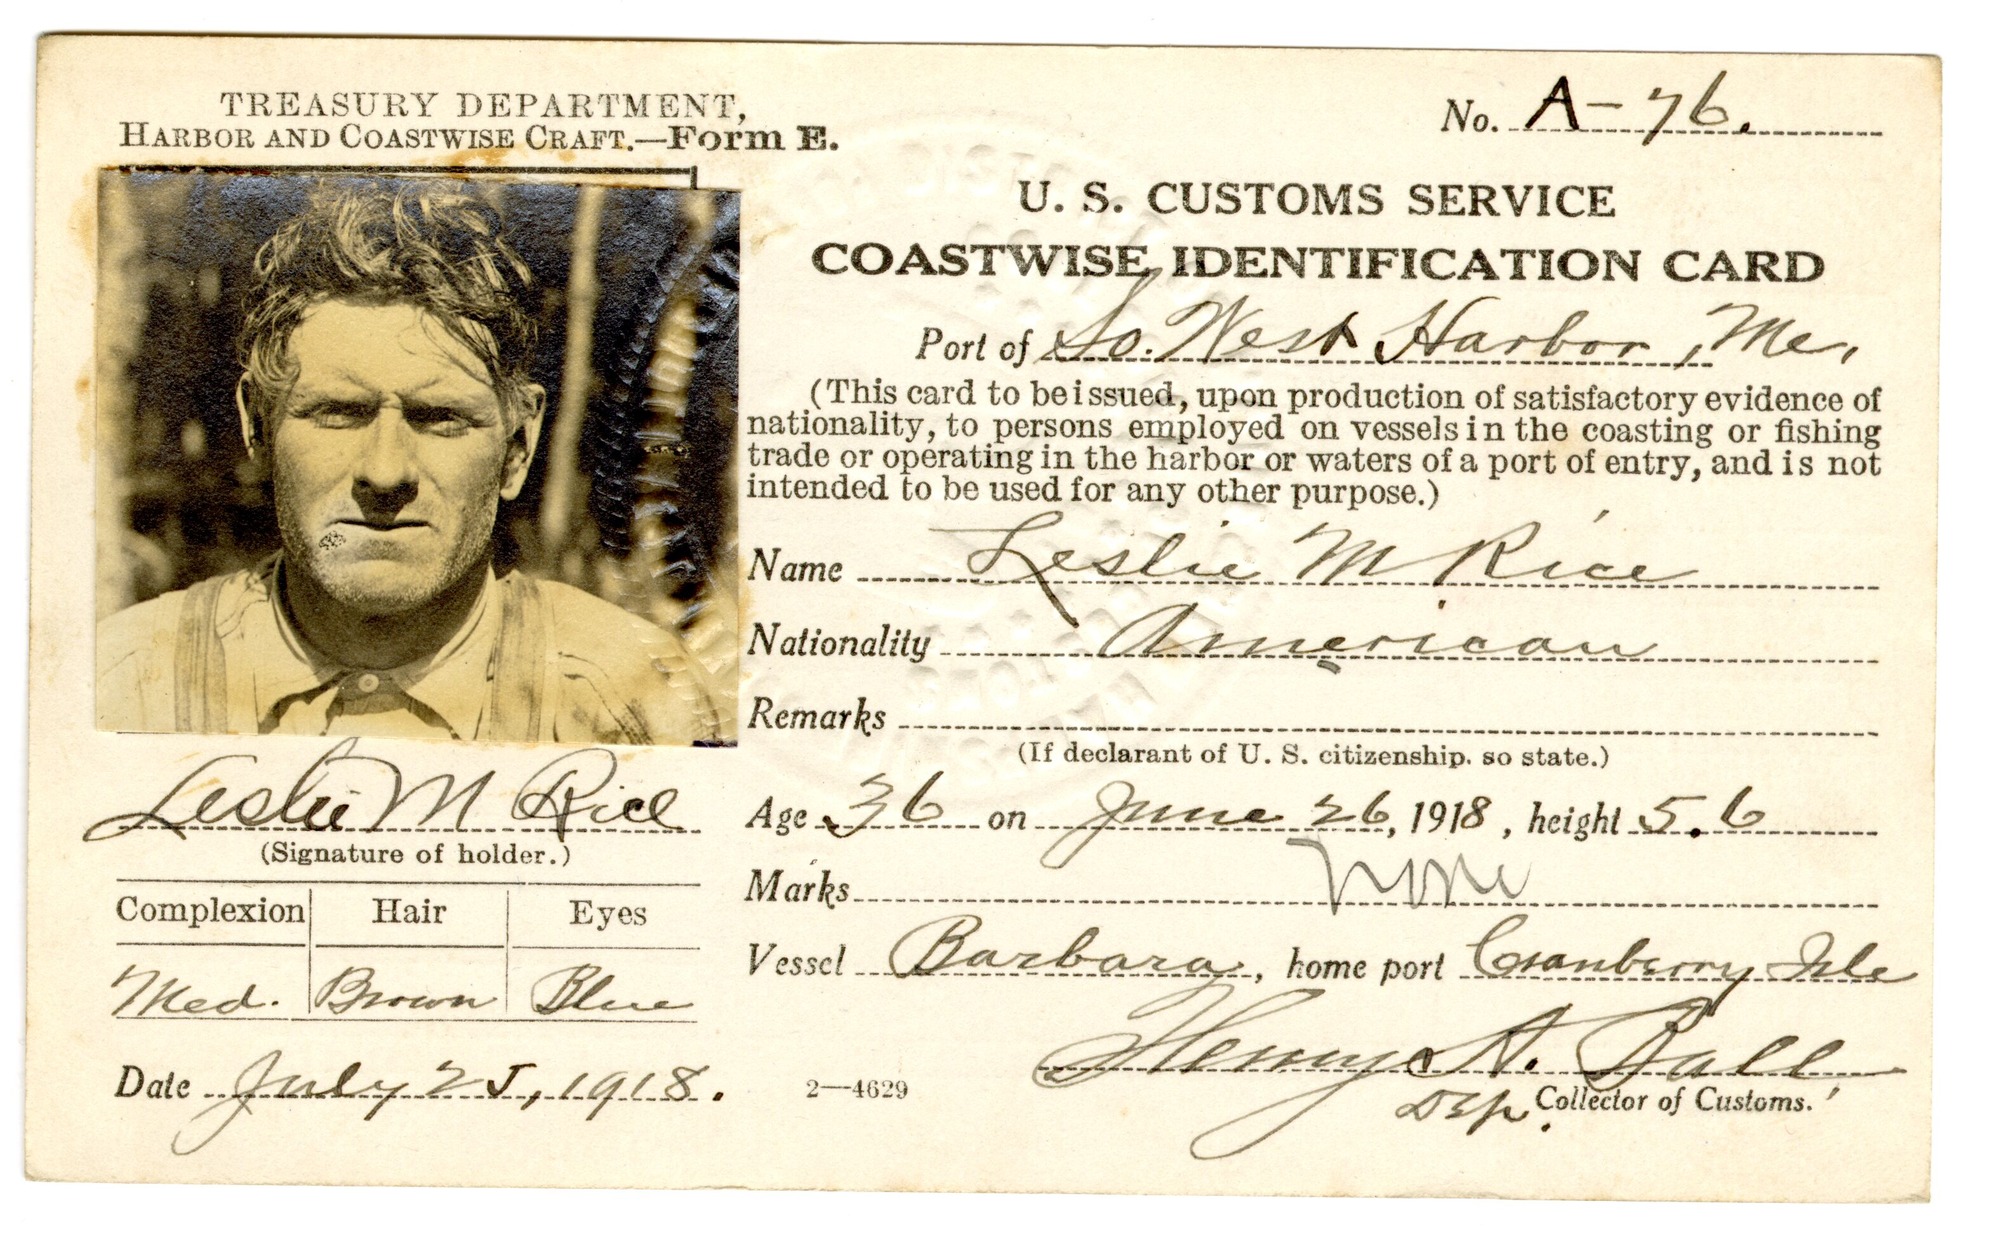 TREASURY DEPARTMENT,
HARBOR AND COASTWISE CRAFT.—Form E.
No. A-76.
U. S. CUSTOMS SERVICE
COASTWISE IDENTIFICATION CARD
Port of So. West Harbor, Me,
(This card to be issued, upon production of satisfactory evidence of
nationality, to persons employed on vessels in the coasting or fishing
trade or operating in the harbor or waters of a port of entry, and is not
intended to be used for any other purpose.)
Name Leslie M Rice
Nationality American
Remarks
(If declarant of U. S. citizenship, so state.)
Age 36 on June 26, 1918, height 5.6
Marks none
Vessel Barbara, home port Cranberry Isle
Henry A. Ball
Dep. Collector of Customs.
Leslie M Rice
(Signature of holder.)
Complexion Hair Eyes
Med. Brown Blue
Date July 25, 1918.
2—4629